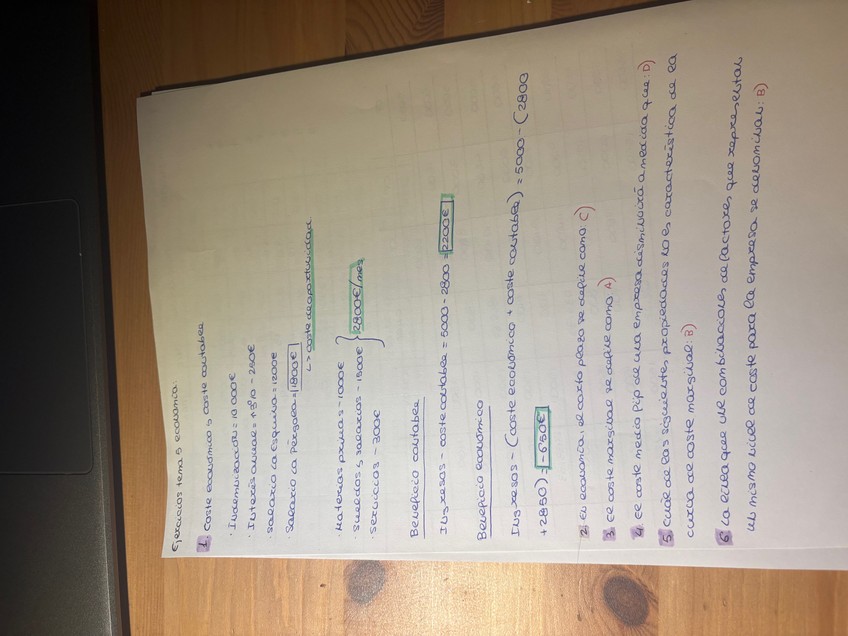 Ejercicios tema 5 economía.
1. Coste económico y coste contable
· Indemnización = 10 000€
· Interés anual = - 250€
· Salario La Esquina = 1200€
Salario La Pérgola = 1800€
↳ coste de oportunidad
· Materias primas - 1000€
· Sueldos y salarios - 1500€ } 2800€/mes
· Servicios - 300€
Beneficio contable
Ingresos - coste contable = 5000 - 2800 = 2200€
Beneficio económico
Ingresos - (coste económico + coste contable) = 5000 - (2800
+ 2850) = -650€
2. En economía, el corto plazo se define como: C)
3. El coste marginal se define como A)
4. El coste medio fijo de una empresa disminuirá a medida que: D)
5. Cuál de las siguientes propiedades no es característica de la
curva de coste marginal: B)
6. La línea que une combinaciones de factores que representan
un mismo nivel de coste para la empresa se denomina: B)